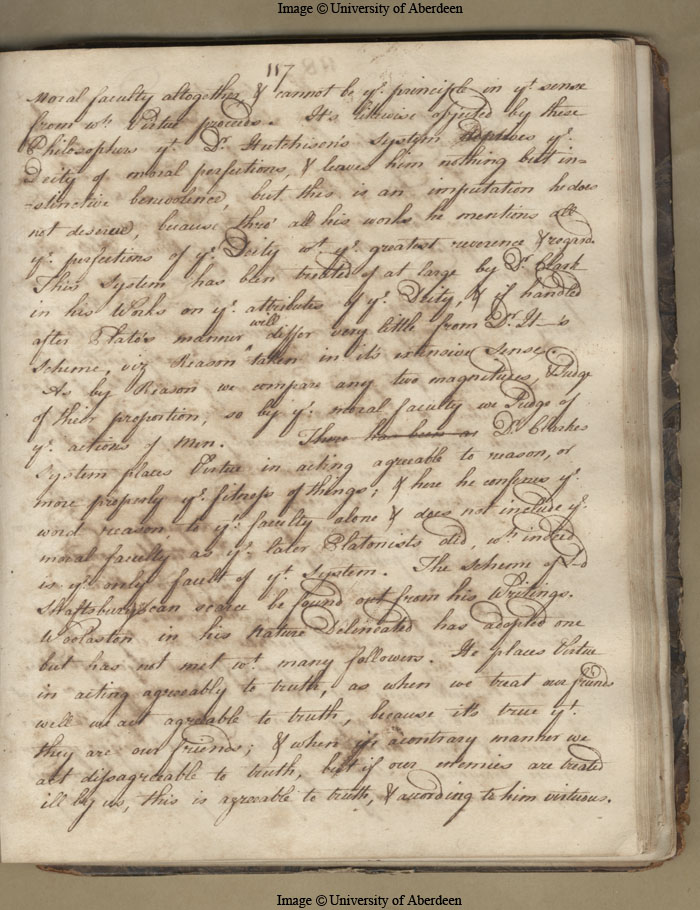 Image © University of Aberdeen
117
Moral faculty altogether & cannot be yᵉ. principle in yᵗ. sense
from wᶜʰ. Virtue proceeds. It's likewise objected by these
Philosophers yᵗ. Dʳ. Hutchison's System deprives yᵉ.
Deity of moral perfections, & leaves him nothing but in=
-stinctive benevolence, but this is an imputation he does
not deserve, because thro' all his works he mentions all
yᵉ. perfections of yᵉ. Deity wᵗ. yᵉ. greatest reverence & regard.
This System has been treated of at large by Dʳ. Clark
in his Works on yᵉ. attributes of yᵉ. Deity, & if handled
after Plato's manner will differ very little from Dʳ. H—'s
scheme, viz Reason taken in it's extensive Sense.
As by Reason we compare any two magnitudes, & Judge
of their proportion, so by yᵉ. moral faculty we Judge of
yᵉ. actions of Men. There has been as Dʳ. Clarkes
System places Virtue in acting agreable to reason, or
more properly yᵉ. fitness of things; & here he confines yᵉ.
word reason to yᵗ. faculty alone & does not include yᵉ.
moral faculty as yᵉ. later Platonists did, wᶜʰ. indeed
is yᵉ. only fault of yᵗ. System. The scheme of L—d
Shaftsbury can scarce be found out from his Writings.
Woolaston in his Nature Delineated has adopted one
but has not met wᵗ. many followers. He places Virtue
in acting agreeably to truth, as when we treat our friends
well we act agreable to truth, because it's true yᵗ.
they are our friends; & when in a contrary manner we
act dissagreeable to truth, but if our enemies are treated
ill by us, this is agreeable to truth, & according to him virtuous.
Image © University of Aberdeen